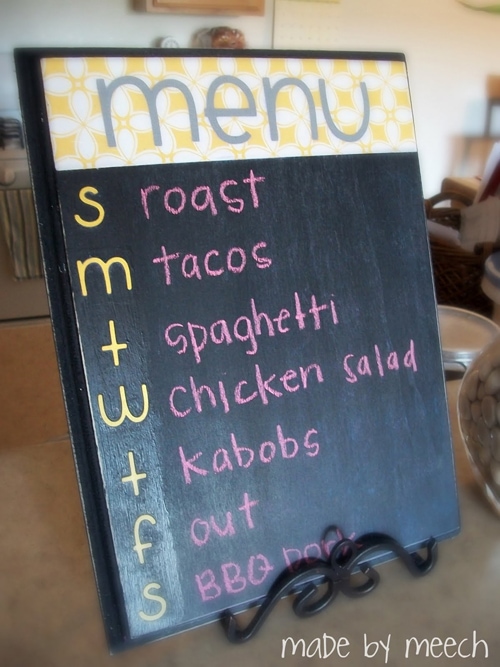 menu
s roast
m tacos
t spaghetti
w chicken salad
t kabobs
f out
s BBQ pork
made by meech